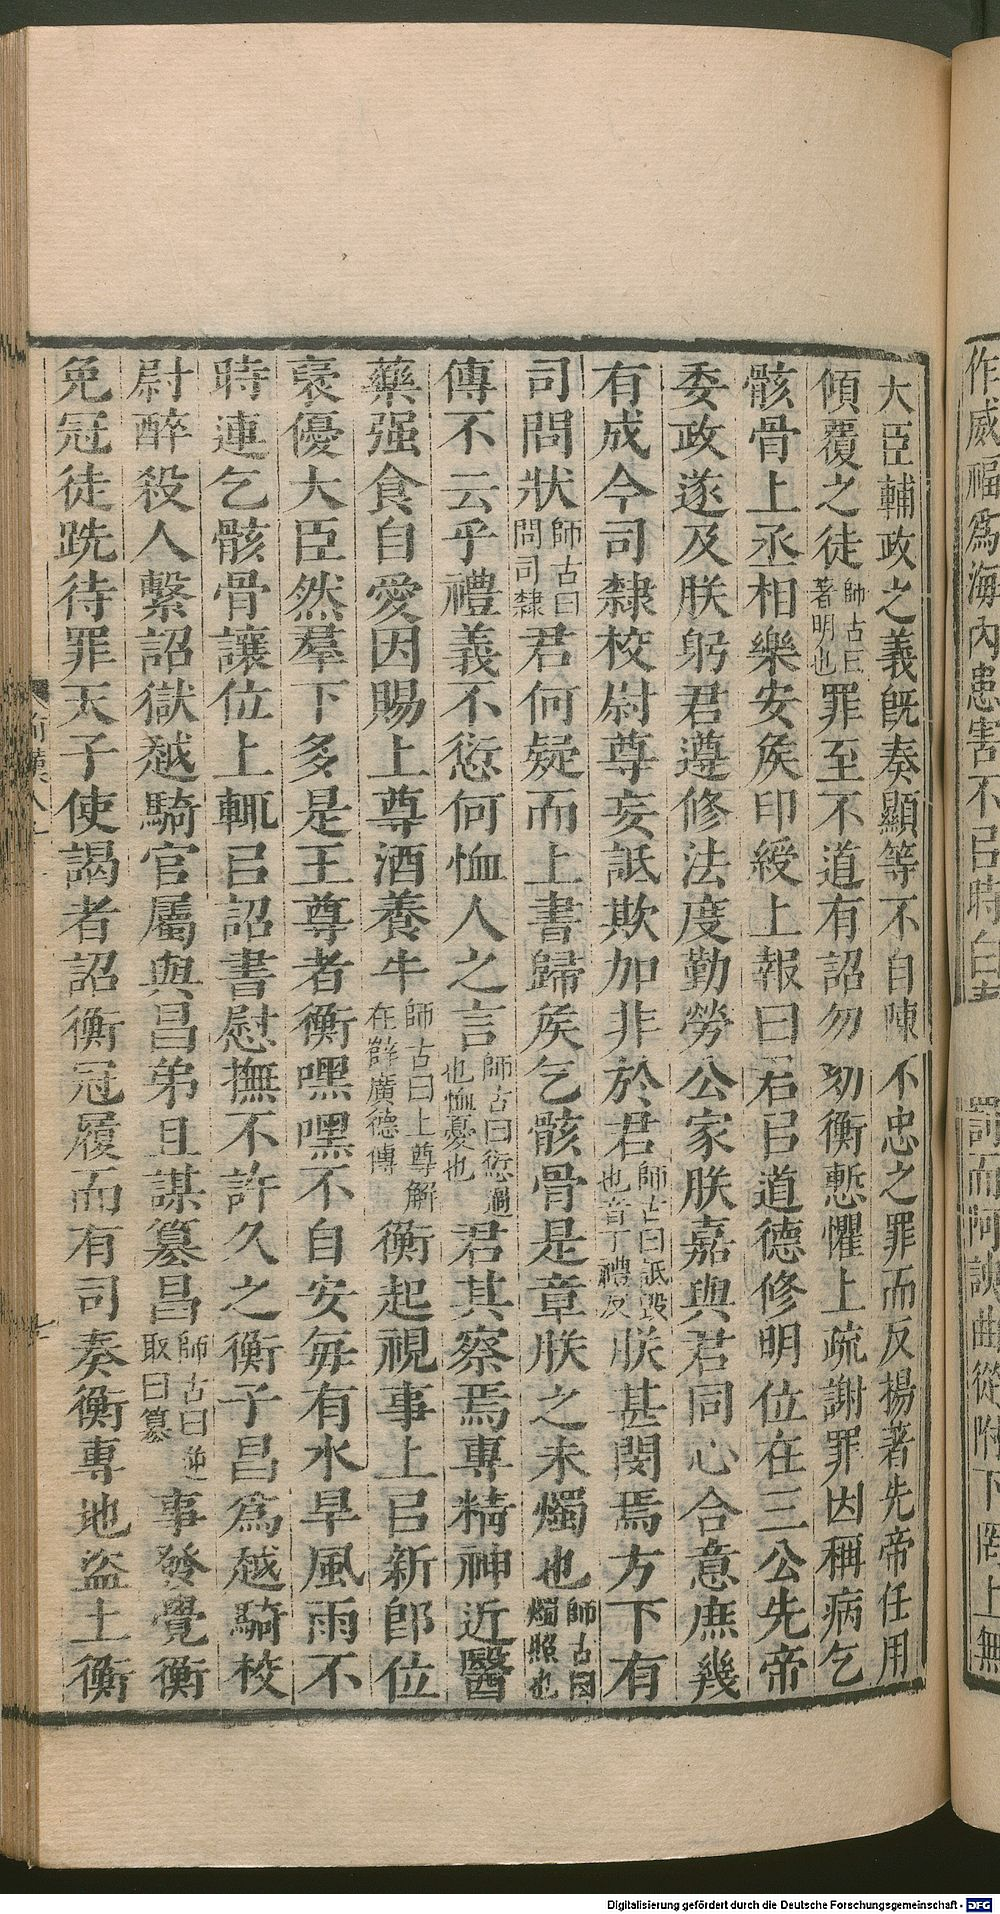 作威福爲海内患害不㠯時白奏
罰而阿諛曲從附下罔上無
大臣輔政之義旣奏顯等不自陳不忠之罪而反揚著先帝任用
傾覆之徒師古曰著明也罪至不道有詔勿劾衡慙懼上疏謝罪因稱病乞
骸骨上丞相樂安矦印綬上報曰君㠯道德修明位在三公先帝
委政遂及朕躬君遵修法度勤勞公家朕嘉與君同心合意庶幾
有成今司隸校尉尊妄詆欺加非於君師古曰詆毀也音丁禮反朕甚閔焉方下有
司問狀師古曰問司隸君何疑而上書歸矦乞骸骨是章朕之未燭也師古曰燭照也
傳不云乎禮義不愆何恤人之言師古曰愆過也恤憂也君其察焉專精神近醫
藥强食自愛因賜上尊酒養牛師古曰上尊解在薛廣德傳衡起視事上㠯新卽位
襃優大臣然羣下多是王尊者衡嘿嘿不自安每有水旱風雨不
時連乞骸骨讓位上輒㠯詔書慰撫不許久之衡子昌爲越騎校
尉醉殺人繫詔獄越騎官屬與昌弟且謀簒昌師古曰逆取曰簒事發覺衡
免冠徒跣待罪天子使謁者詔衡冠履而有司奏衡專地盜土衡
Digitalisierung gefördert durch die Deutsche Forschungsgemeinschaft - DFG